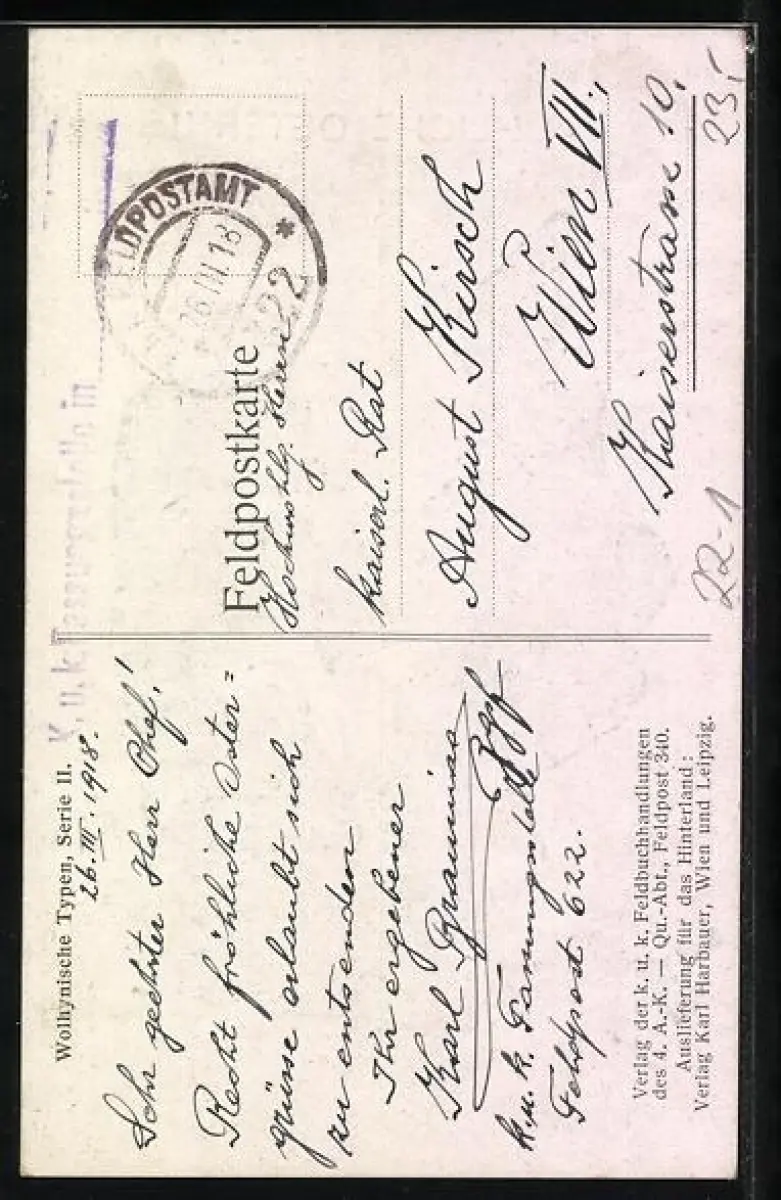 Wolhynische Typen, Serie II.
26. III. 1918.
Sehr geehrter Herr Chef!
Recht fröhliche Oster=
grüsse erlaubt sich
zu entsenden
Ihr ergebener
Karl
k. u. k. Fassungsstelle
Feldpost 622.
Verlag der k. u. k. Feldbuchhandlungen
des 4. A.-K. — Qu.-Abt., Feldpost 340.
Auslieferung für das Hinterland:
Verlag Karl Harbauer, Wien und Leipzig.
K. u. k. Fassungsstelle in
FELDPOSTAMT
26 III 18
*
622
Feldpostkarte
Hochwohlg. Herrn
kaiserl. Rat
August Kirsch
Wien VII.,
Kaiserstrasse 10.
22-1
23,-